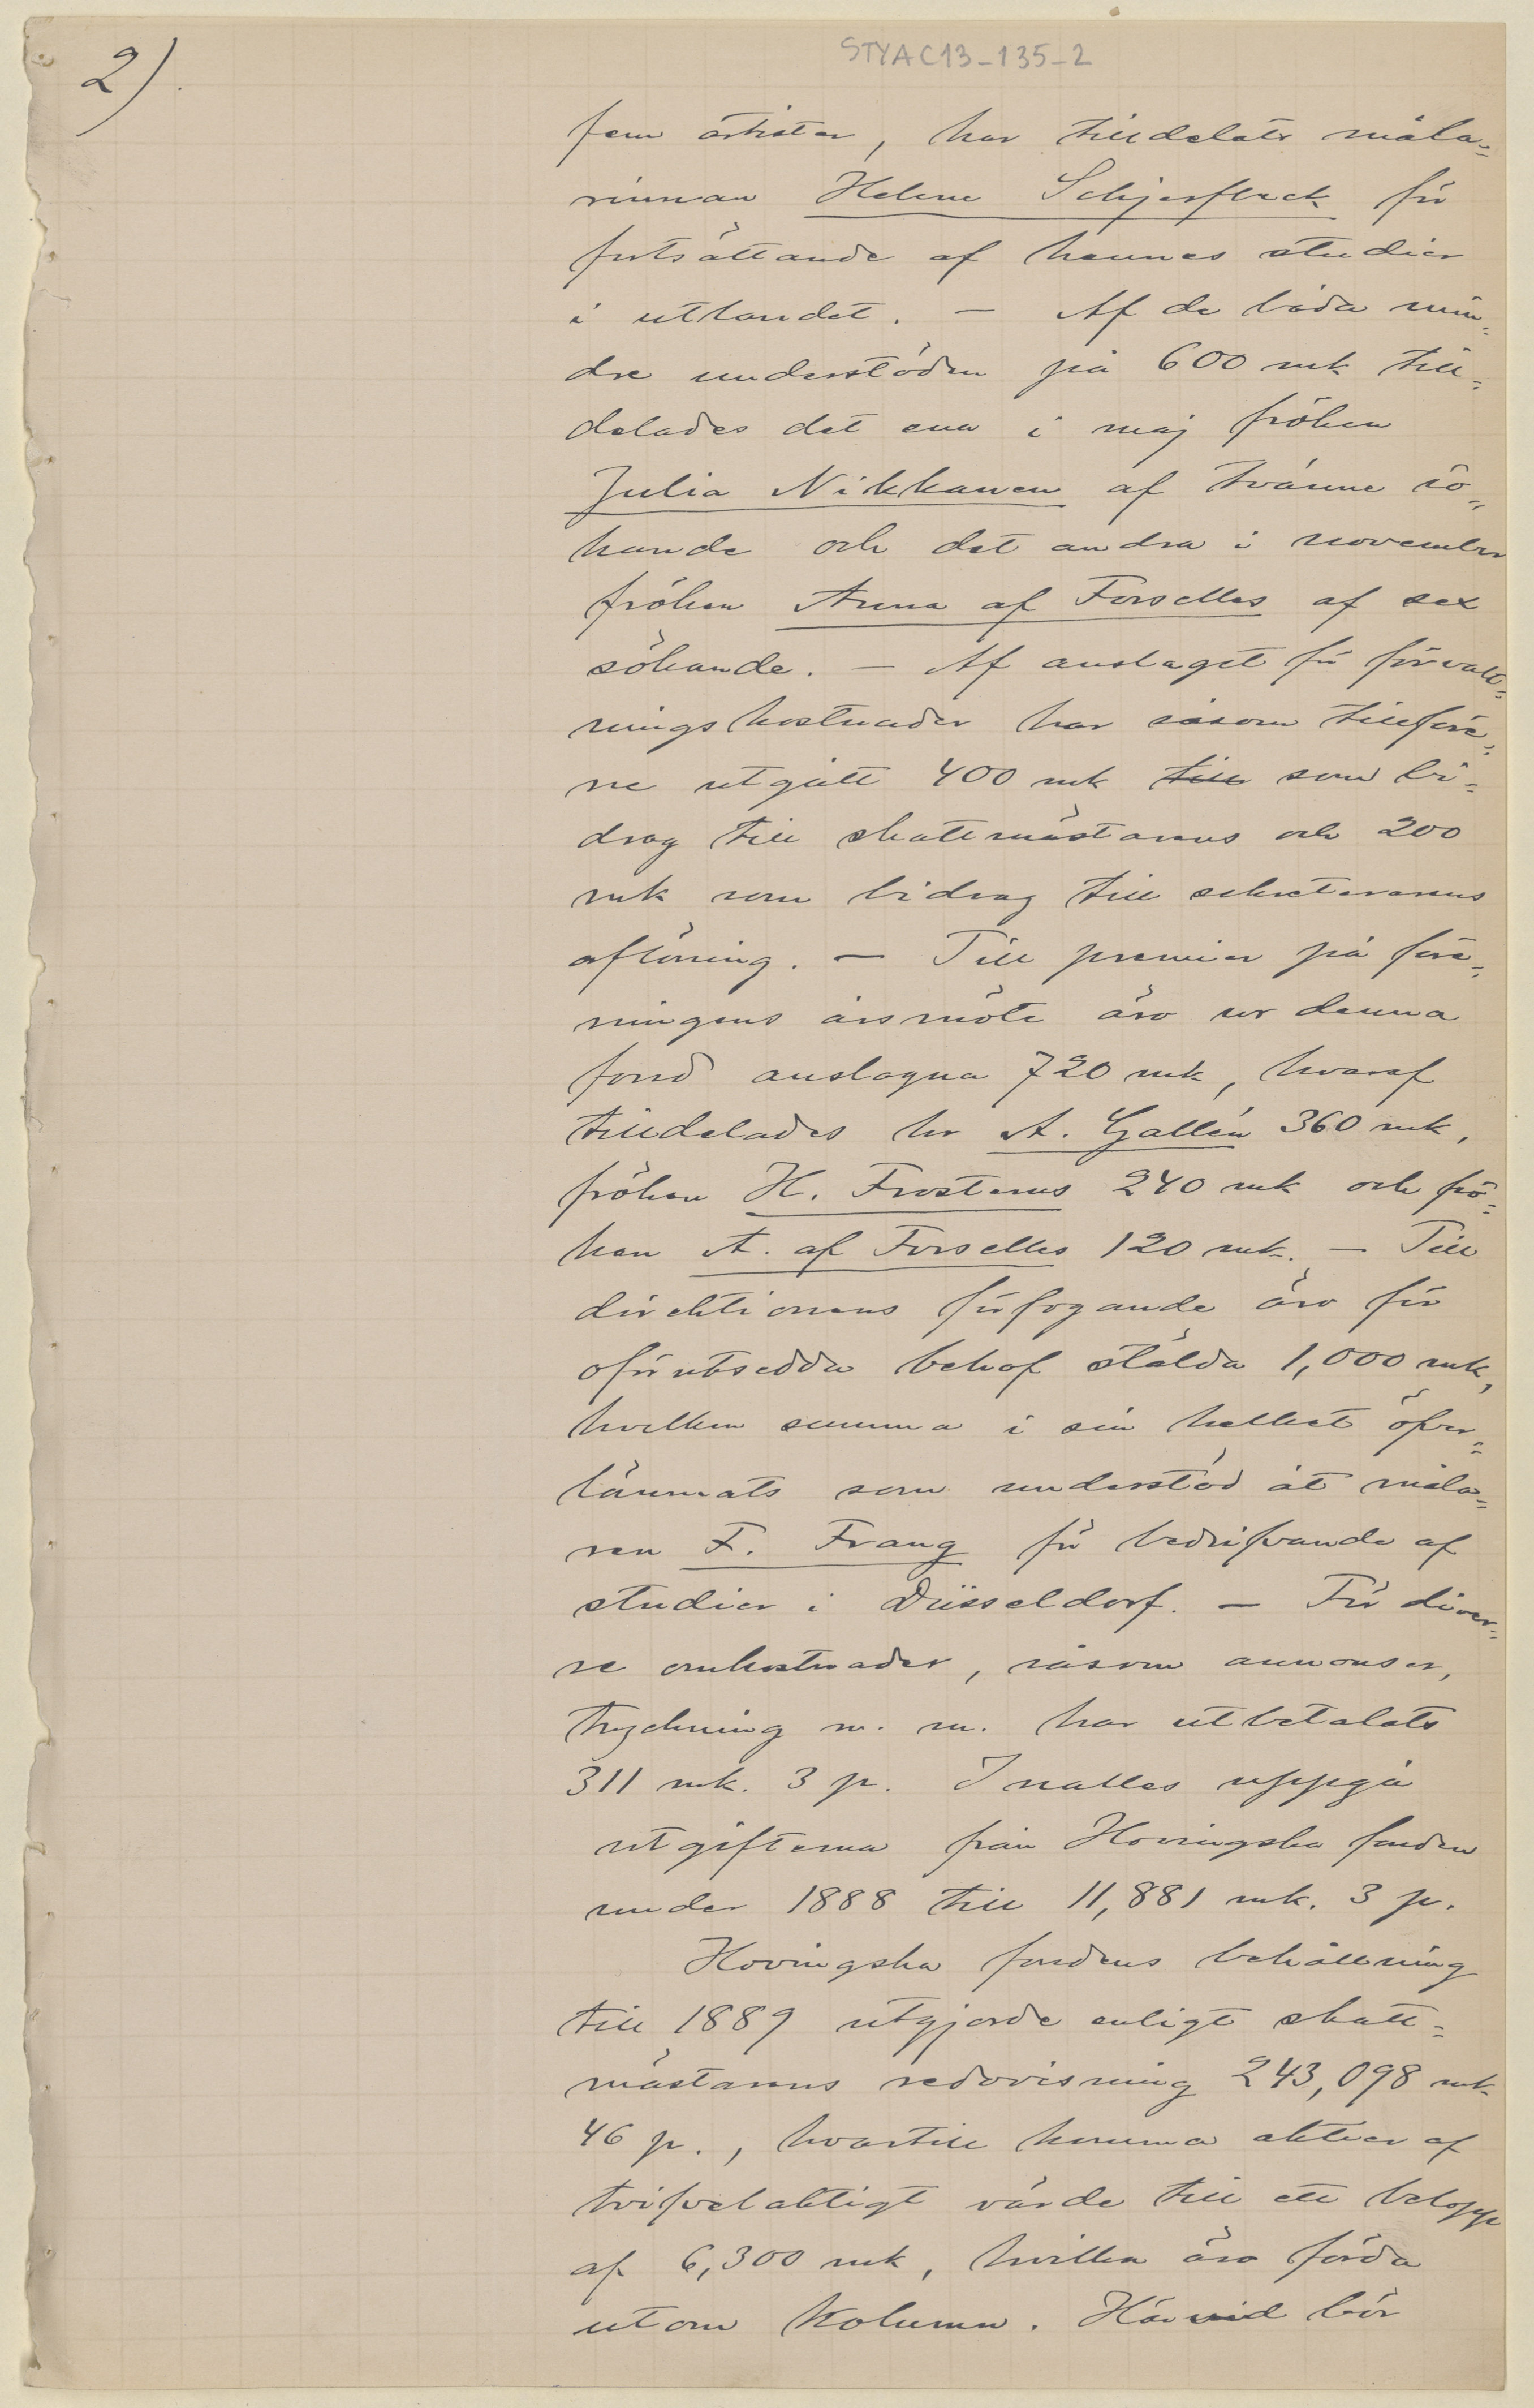 STYAC13-135-2
2)
fem artister, har tilldelats måla=
rinnan Helene Schjerfbeck för
fortsättande af hennes studier
i utlandet. — Af de båda min=
dre understöden på 600 mk till=
delades det ena i maj fröken
Julia Nikkanen af tvänne sö=
kande och det andra i november
fröken Anna af Forselles af sex
sökande. — Af anslaget för förvalt=
ningskostnader har såsom tillföre=
ne utgått 400 mk till som bi=
drag till skattmästarens och 200
mk som bidrag till sekreterarens
aflöning. — Till premier på före=
ningens årsmöte äro ur denna
fond anslagna 720 mk, hvaraf
tilldelades hr A. Gallén 360 mk,
fröken H. Frosterus 240 mk och frö=
ken A. af Forselles 120 mk. — Till
direktionens förfogande äro för
oförutsedda behof stälda 1,000 mk,
hvilken summa i sin helhet öfver=
lämnats som understöd åt måla=
ren F. Frang för bedrifvande af
studier i Düsseldorf. — För diver=
se omkostnader, såsom annonser,
tryckning m. m. har utbetalats
311 mk. 3 p. Inalles uppgå
utgifterna från Hovingska fonden
under 1888 till 11,881 mk. 3 p.
Hovingska fondens behållning
till 1889 utgjorde enligt skatt=
mästarens redovisning 243,098 mk
46 p., hvartill komma aktier af
tvifvelaktigt värde till ett belopp
af 6,300 mk, hvilka äro förda
utom kolumn. Härvid bör